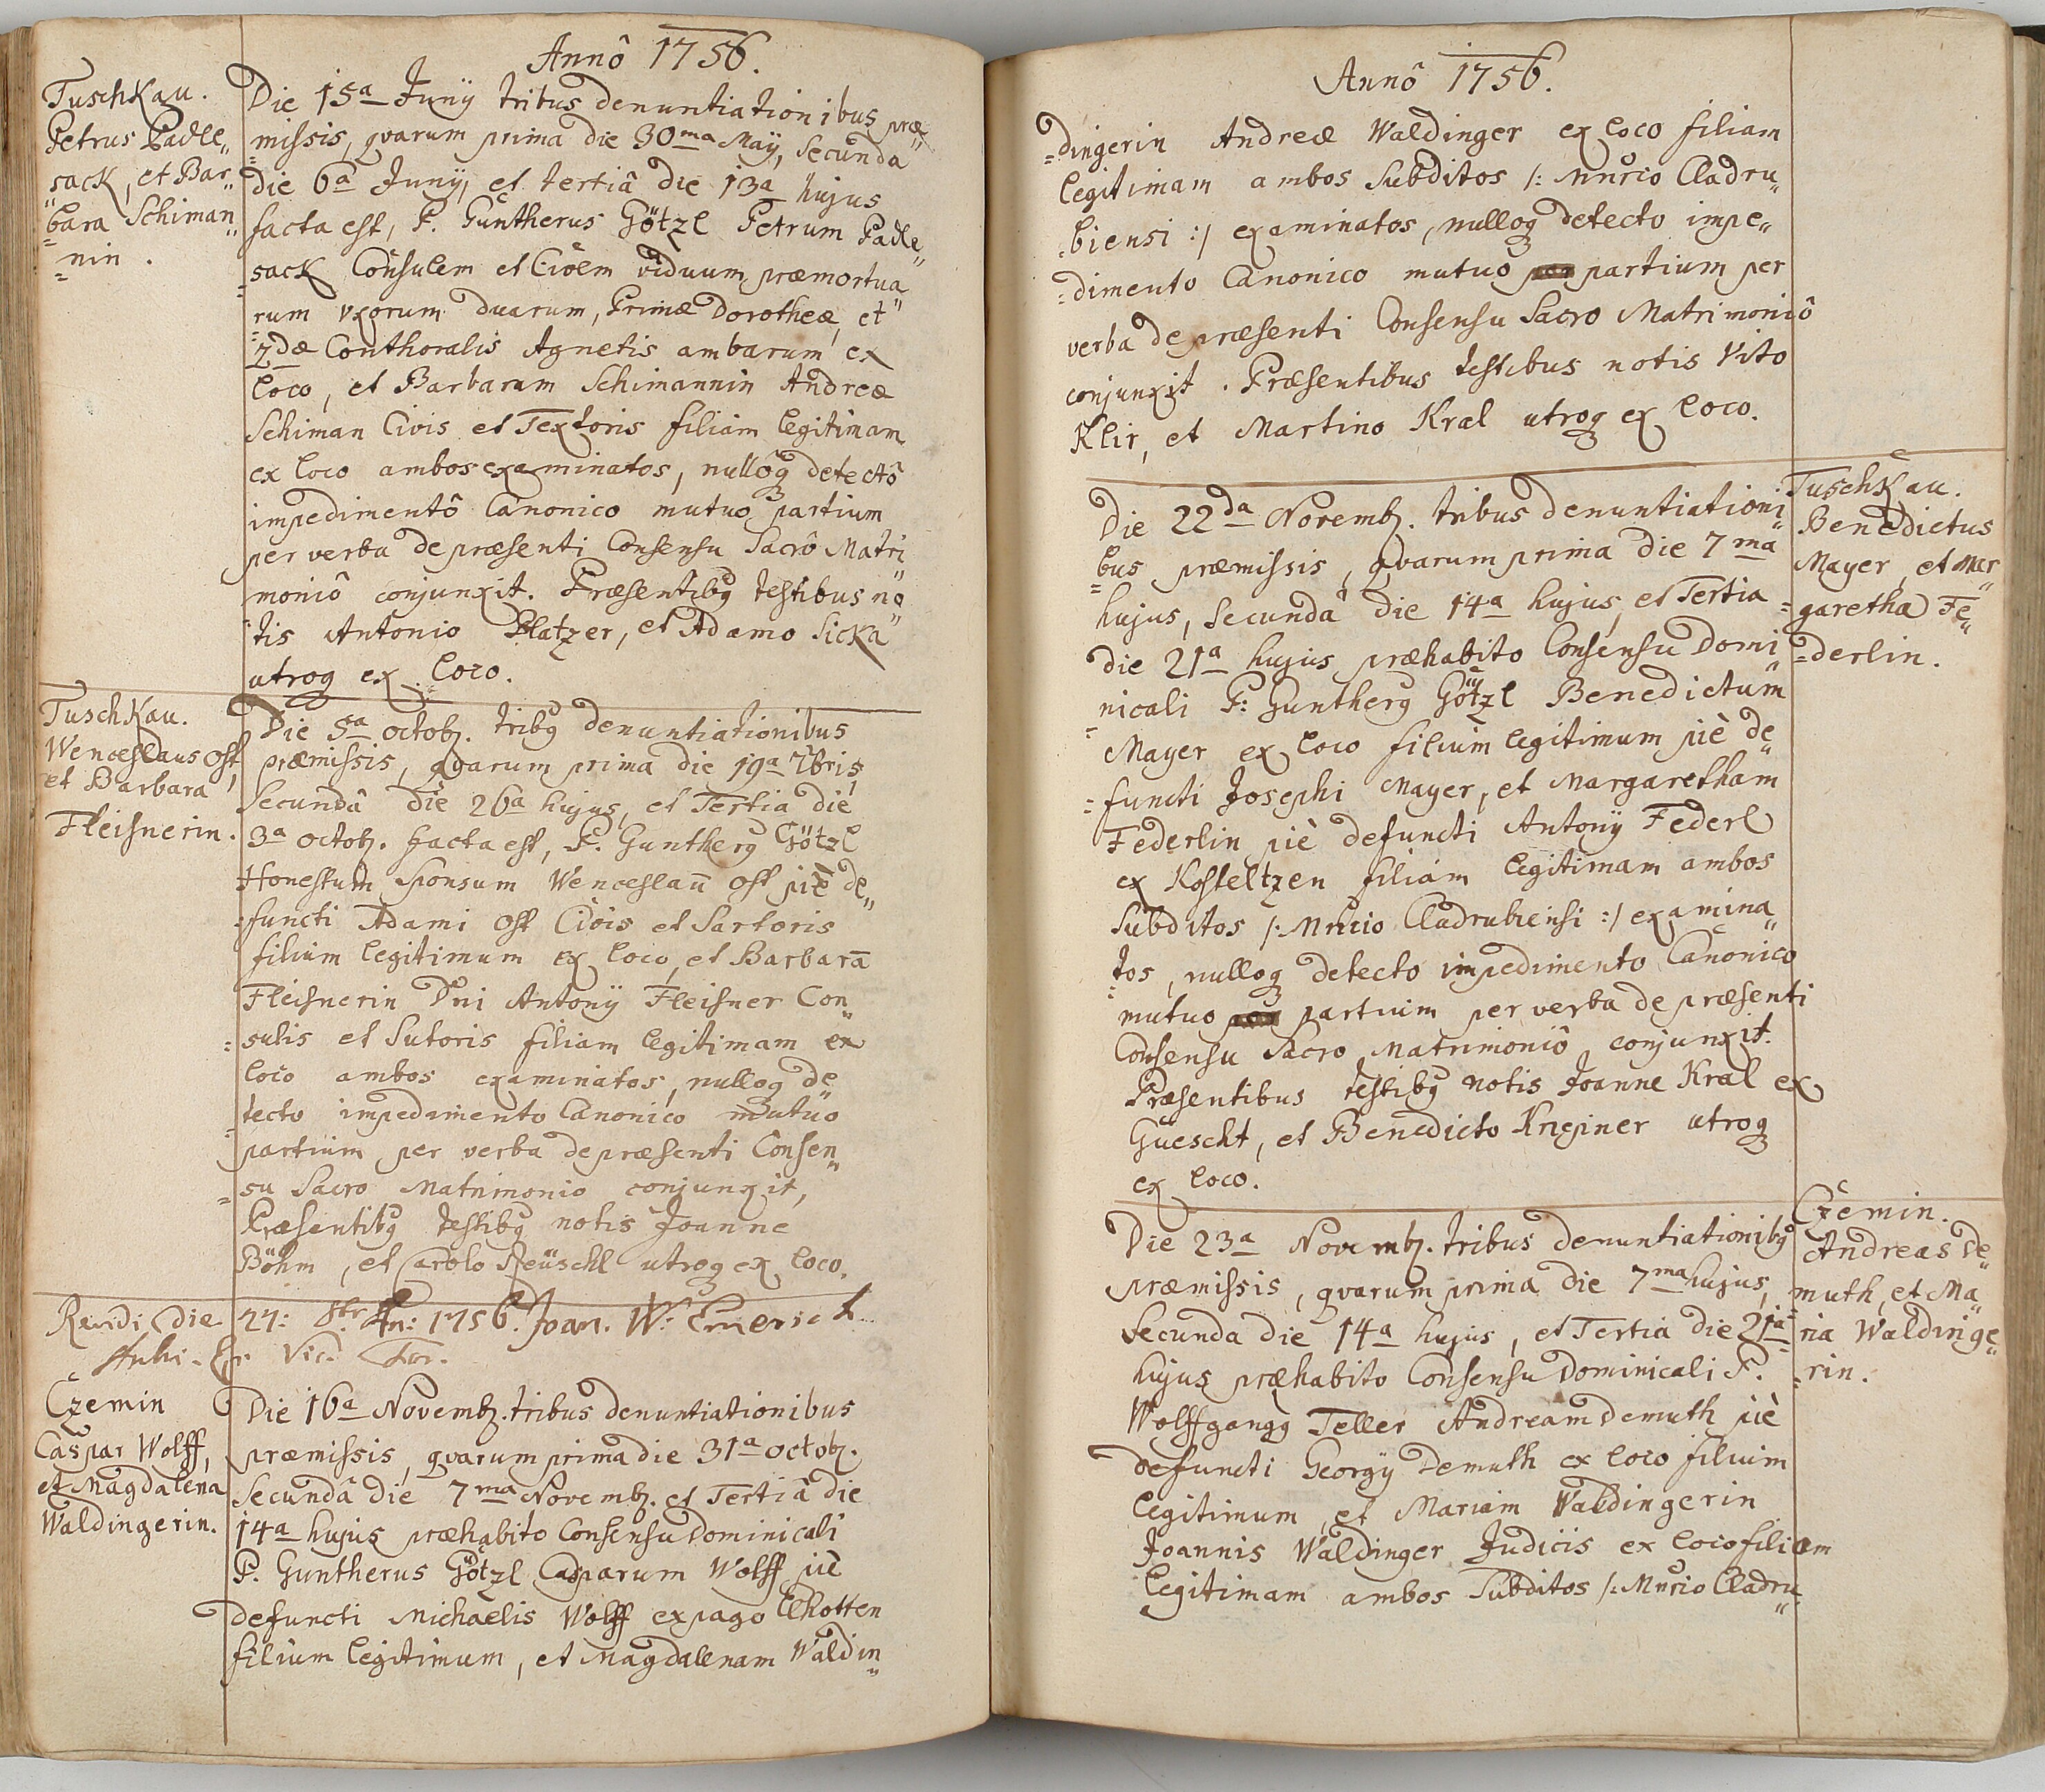 Annô 1756.
Tuschkau.
Petrus Padle„
sack, et Bar„
bara Schiman„
nin.
Die 15a Junij tribus denuntiationibus præ„
missis, qvarum prima die 30ma Maij, Secunda
die 6a Junij, et tertiâ die 13a hujus
facta est, P. Guntherus Götzl Petrum Padle„
sack Consulem et Civem viduum præmortua„
rum Uxorum duarum, Primæ Dorotheæ, et
2dæ Conthoralis Agnetis ambarum ex
loco, et Barbaram Schimannin Andreæ
Schiman Civis et Textoris filiam legitimam
ex loco ambos examinatos, nullôq detectô
impedimentô Canonico mutuo partium
per verba de præsenti Consensu Sacrô Matri„
moniô conjunxit. Præsentibq testibus no„
tis Antonio Platzer, et Adamo Sicka
utroq ex loco.
Tuschkau.
Wenceslaus Ost,
et Barbara
Fleisnerin.
Die 5a octob. tribq denuntiationibus
præmissis, qvarum prima die 19a 7bris,
Secundâ die 26a hujus, et Tertia die
3a octob. facta est, P. Guntherq Götzl
Honestum Sponsum Wenceslaū Ost piè de„
functi Adami Ost Civis et Sartoris
filium legitimum ex loco, et Barbarā
Fleisnerin Dni Antonij Fleisner Con„
sulis et Sutoris filiam legitimam ex
loco ambos examinatos, nulloq de„
tecto impedimento Canonico mutuo
partium per verba de præsenti Consen„
su Sacro Matrimonio conjunxit,
Præsentibq testibq notis Joanne
Böhm, et Carolo utroq ex loco.
die 27: 8br. An: 1756. Joan. W. Emerich
Vic. For.
Czemin
Caspar Wolff,
et Magdalena
Waldingerin.
Die 16a Novemb. tribus denuntiationibus
præmissis, qvarum prima die 31a octob.
Secundâ die 7ma Novemb. et Tertiâ die
14a hujus præhabito Consensu Dominicali
P. Guntherus Götzl Casparum Wolff piè
defuncti Michaelis Wolff ex pago Elhotten
filium legitimum, et Magdalenam Waldin„
Annô 1756.
dingerin Andreæ Waldinger ex loco filiam
legitimam ambos Subditos /: Mnrio Cladru„
biensi :/ examinatos, nulloq detecto impe„
dimento Canonico mutuo partium per
verba de præsenti Consensu Sacro Matrimoniô
conjunxit. Præsentibus testibus notis Vito
Klir, et Martino Kral utroq ex loco.
Die 22da Novemb. tribus denuntiationi„
bus præmissis, qvarum prima die 7ma
hujus, Secunda die 14a hujus, et Tertia
die 21a hujus præhabito Consensu Domi„
nicali P: Guntherq Götzl Benedictum
Mayer ex loco filium legitimum piè de„
functi Josephi Mayer, et Margaretham
Federlin piè defuncti Antonij Federl
ex Kosteltzen filiam legitimam ambos
Subditos /: Mnrio Cladrubiensi :/ examina„
tos, nulloq detecto impedimento Canonico
mutuo partium per verba de præsenti
Consensu Sacro Matrimoniô conjunxit.
Præsentibus testibq notis Joanne Kral ex
Guescht, et Benedicto Knepiner utroq
ex loco.
Tuschkau.
Benedictus
Mayer, et Mar„
garetha Fe„
derlin.
Die 23a Novemb. tribus denuntiationibq
præmissis, qvarum prima die 7ma hujus,
Secunda die 14a hujus, et Tertia die 21a
hujus præhabito Consensu Dominicali P.
Wolffgangq Teller Andream Demuth piè
defuncti Georgij Demuth ex loco filium
legitimum, et Mariam Waldingerin
Joannis Waldinger Judicis ex loco filiam
legitimam ambos Subditos /: Mnrio Cladru„
Czemin.
Andreas De„
muth, et Ma„
ria Waldinge„
rin.